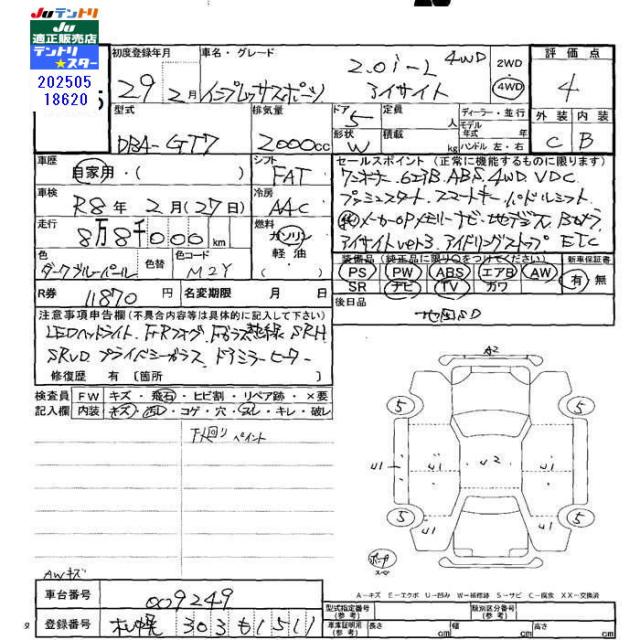 Juテントリ
Ju
適正販売店
テントリ
★スター
202505
18620
初度登録年月
29年 2月
車名・グレード
インプレッサスポーツ
2.0i-L 4WD
アイサイト
2WD
・
4WD
評価点
4
外装 内装
C B
型式
DBA-GT7
排気量
2000cc
ドア
5
形状
W
定員
人
積載
kg
ディーラー・並行
モデル
年式 年
ハンドル 左・右
車歴
自家用・( )
シフト
FAT
車検
R8年 2月(27日)
冷房
AAC
走行
8万8千000km
燃料
ガソリン
軽・油
( )
色
ダークブルーパール
色替
色コード
M2Y
R券
11870円
名変期限 月 日
セールスポイント(正常に機能するものに限ります)
ワンオーナー.6エアB.ABS.4WD.VDC.
プッシュスタート.スマートキー.パドルシフト.
メーカーOPメモリーナビ・地デジ.Bカメラ
アイサイトver3.アイドリングストップ.ETC
装備品(純正品に限り○をつけてください)
PS PW ABS エアB AW
SR ナビ TV カワ
新車保証書
有・無
後日品
地図SD
注意事項申告欄(不具合内容等は具体的に記入して下さい)
LEDヘッドライト.
SRVD.プライバシーガラス.ドアミラーヒーター
修復歴 有 [箇所
検査員
記入欄
FW キズ・飛石・ヒビ割・リペア跡・×要
内装 キズ・汚レ・コゲ・穴・スレ・キレ・破レ
下回り ペイント
AWキズ
A2
5 5
U1 U1 U2 U1 U1
5 5
A-キズ E-エクボ U-凹み W-補修跡 S-サビ C-腐食 XX-交換済
車台番号
009249
登録番号
札幌 303 も1511
型式指定番号
(参考)
類別区分番号
(参考)
車庫証明用
(参考)
長さ cm 幅 cm 高さ cm